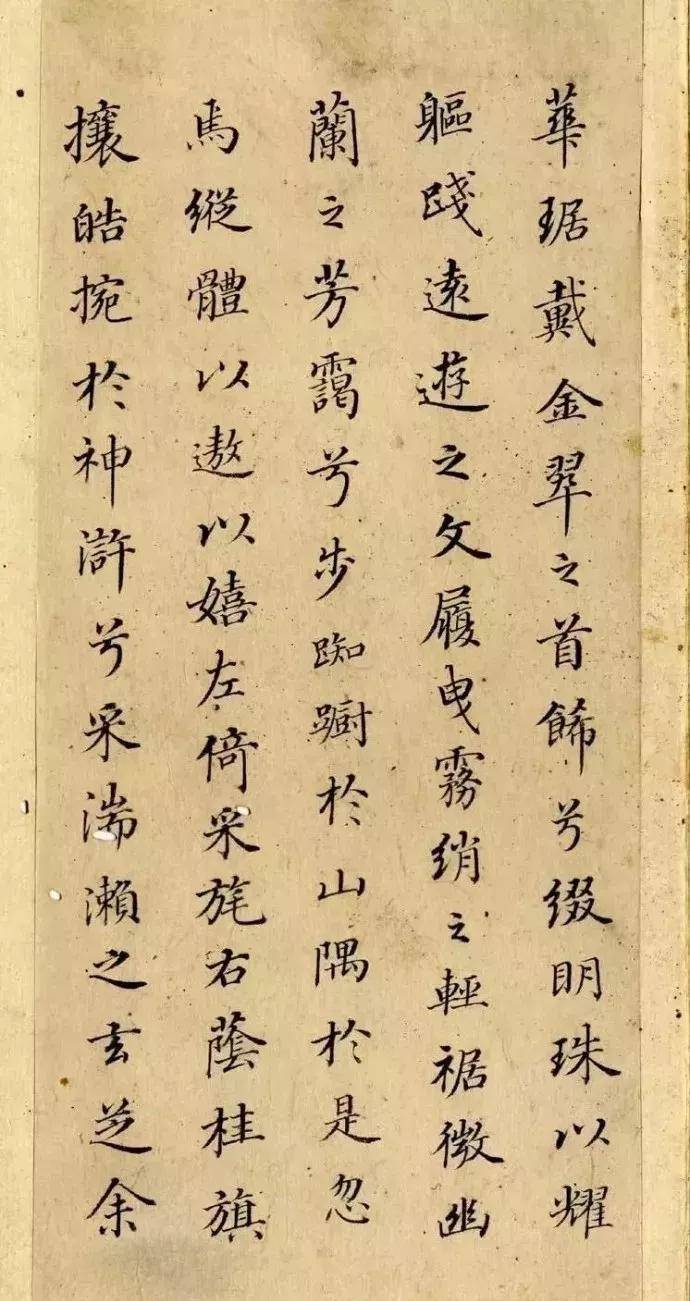 華琚戴金翠之首餙兮綴明珠以耀
軀踐遠遊之文履曳霧綃之輕裾微幽
蘭之芳靄兮步踟躕於山隅於是忽
焉縱體以遨以嬉左倚采旄右蔭桂旗
攘皓捥於神滸兮采湍瀨之玄芝余